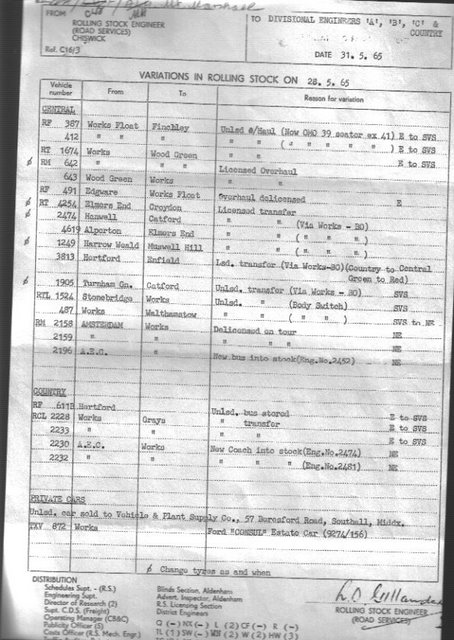 FROM
ROLLING STOCK ENGINEER
(ROAD SERVICES)
CHISWICK
Ref. C16/3
TO DIVISIONAL ENGINEERS 'A', 'B', 'C' &
COUNTRY
DATE 31. 5. 65
VARIATIONS IN ROLLING STOCK ON 28. 5. 65
Vehicle number From To Reason for variation
CENTRAL
RF 387 Works Float Finchley Unlsd O/Haul (Now OMO 39 seater ex 41) E to SVS
412 " " " " " ( " " " " ) E to SVS
RT 1674 Works Wood Green " " E to SVS
ø RM 642 " " " Licensed Overhaul
643 Wood Green Works " "
RF 491 Edgware Works Float Overhaul delicensed E
ø RT 4254 Elmers End Croydon Licensed transfer
ø 2474 Hanwell Catford " " (Via Works - BO)
4619 Alperton Elmers End " " ( " " " )
ø 1249 Harrow Weald Muswell Hill " " ( " " " )
3813 Hertford Enfield Lsd. transfer (Via Works-BO)(Country to Central
Green to Red)
ø 1905 Turnham Gn. Catford Unlsd. transfer (Via Works - BO) SVS
RTL 1524 Stonebridge Works Unlsd. " (Body Switch) SVS
487 Works Walthamstow " " ( " " ) SVS to NE
RM 2158 AMSTERDAM Works Delicensed on tour NE
2159 " " " " " NE
2196 A.E.C. " New bus into stock(Eng.No.2452) NE
COUNTRY
RF 611B Hertford Unlsd. bus stored E to SVS
RCL 2228 Works Grays " transfer E to SVS
2233 " " " " E to SVS
2230 A.E.C. Works New Coach into stock(Eng.No.2474) NE
2232 " " " " " " (Eng.No.2481) NE
PRIVATE CARS
Unlsd. car sold to Vehicle & Plant Supply Co., 57 Beresford Road, Southall, Middx.
TXV 872 Works Ford "CONSUL" Estate Car (9274/156)
ø Change tyres as and when
DISTRIBUTION
Schedules Supt. - (R.S.)
Engineering Supt.
Director of Research (2)
Supt. C.D.S. (Freight)
Operating Manager (CB&C)
Publicity Officer
Costs Officer (R.S. Mech. Engr.)
Blinds Section, Aldenham
Advert. Inspector, Aldenham
R.S. Licensing Section
District Engineers
Q (-) NX (-) L (2) CF (-) R (-)
TL (1) SW (-) WH (2) W (2) HW (3)
ROLLING STOCK ENGINEER
(ROAD SERVICES)